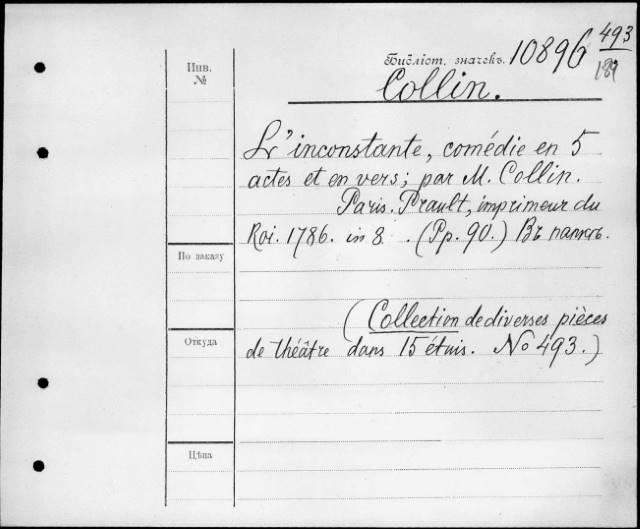 Библіот. значекъ. 10896 493
189
Инв.
№
Collin.
L'inconstante, comédie en 5
actes et en vers; par M. Collin.
Paris. Prault, imprimeur du
Roi. 1786. in 8. (Pp. 90.) Въ папкѣ.
По заказу
(Collection de diverses pièces
Откуда
de théâtre dans 15 étuis. No 493.)
Цѣна